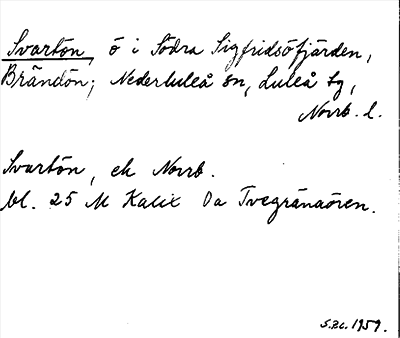 Svartön, ö i Södra Sigfridsöfjärden,
Brändön; Nederluleå sn, Luleå tg,
Norrb. l.
Svartön, ek Norrb.
bl. 25 M Kalix Da Tvegränaören.
1959.